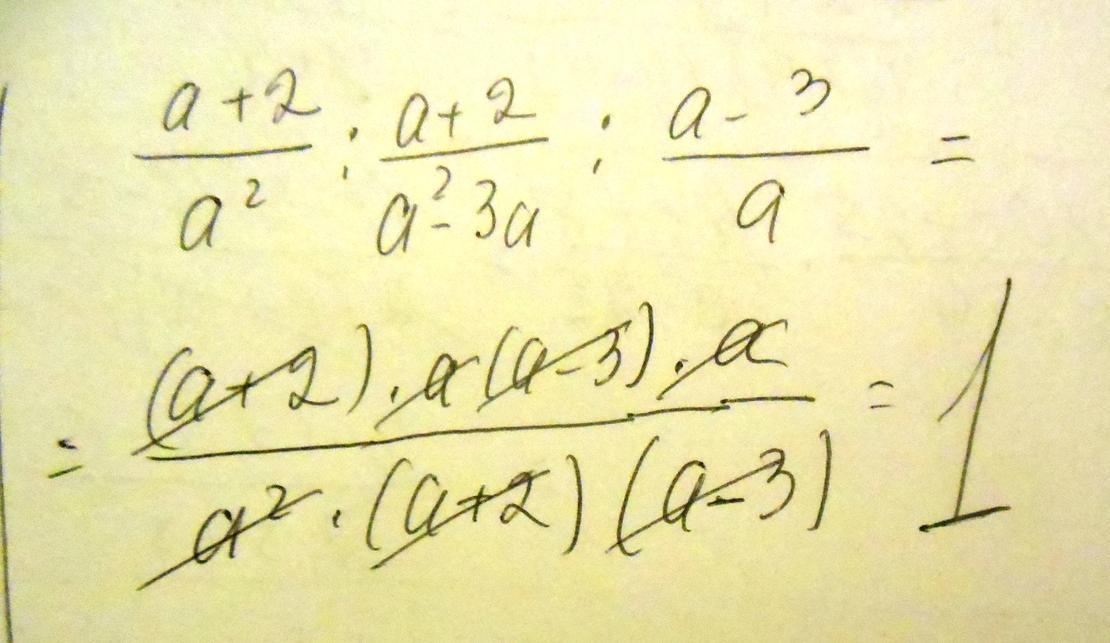 \frac{a+2}{a^2} : \frac{a+2}{a^2-3a} : \frac{a-3}{a} =
= \frac{(a+2) \cdot a(a-3) \cdot a}{a^2 \cdot (a+2)(a-3)} = 1